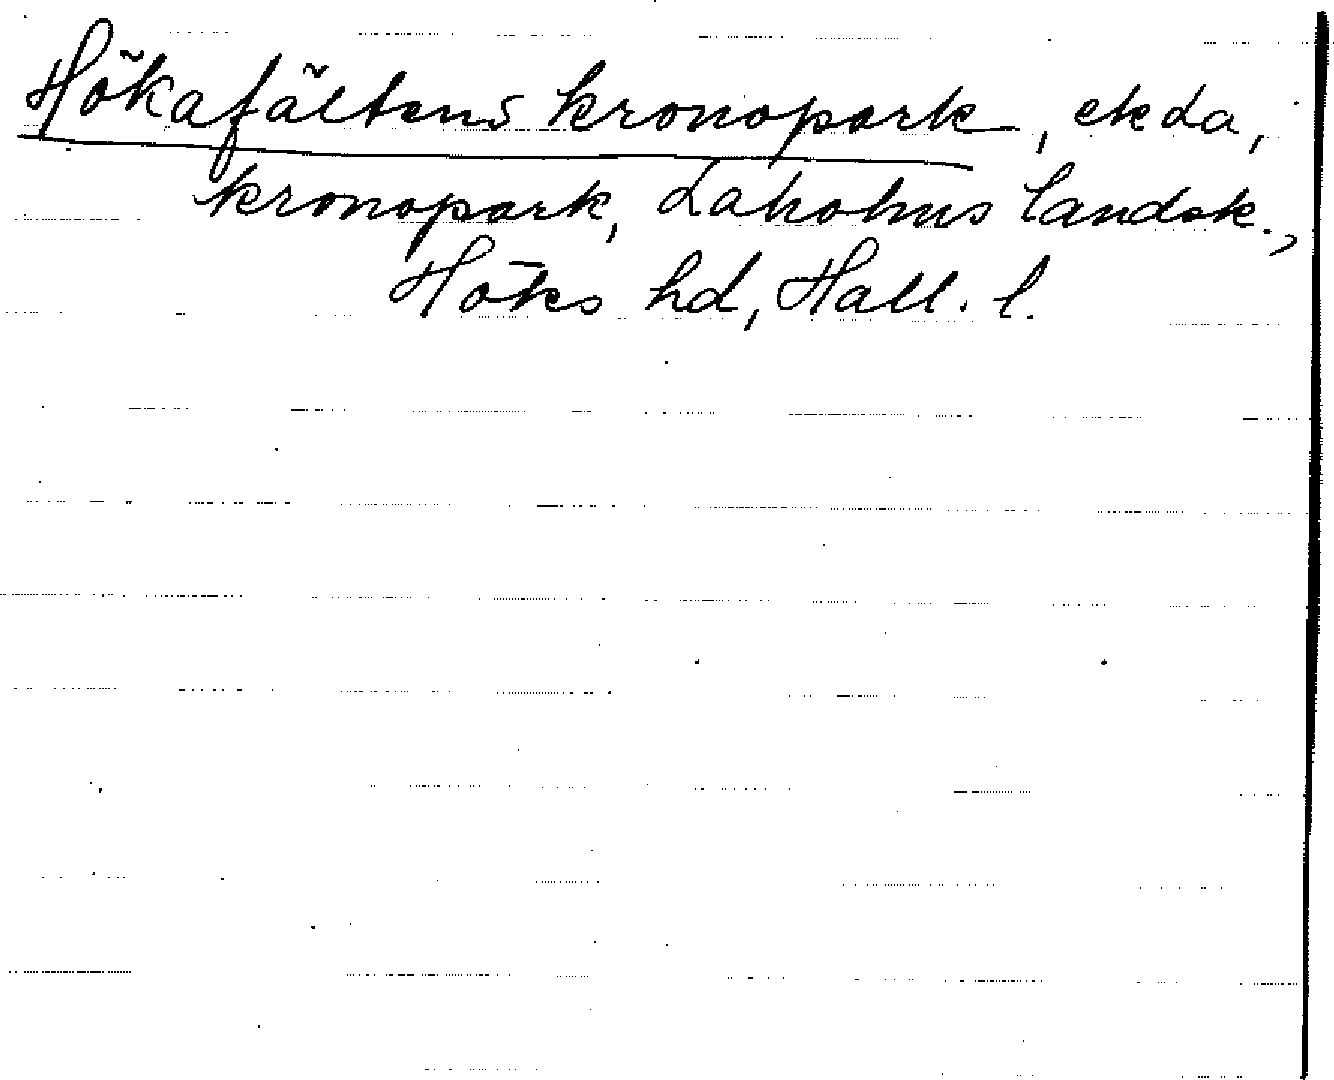 Hökafältens kronopark, ekda,
kronopark, Laholms landsk.,
Höks hd, Hall. l.